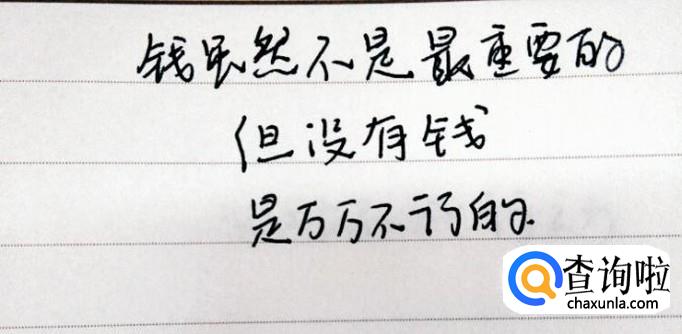 钱虽然不是最重要的
但没有钱
是万万不行的
查询啦
chaxunla.com